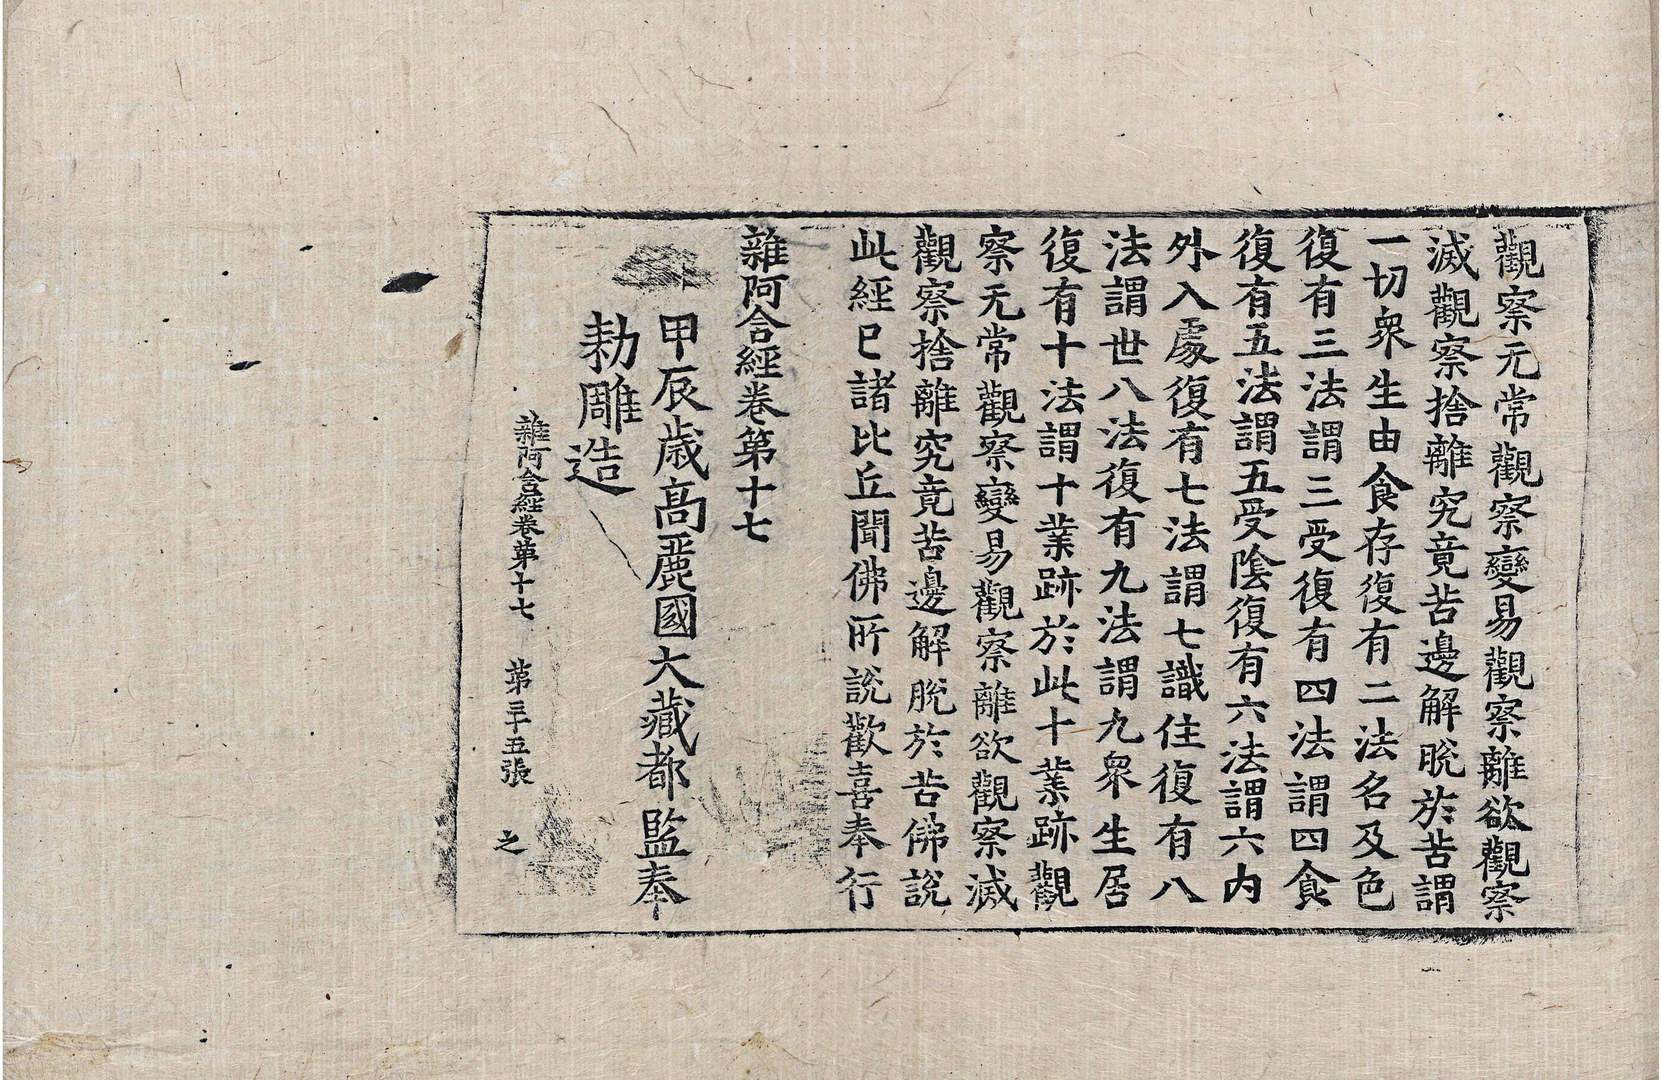 觀察无常觀察變易觀察離欲觀察
滅觀察捨離究竟苦邊解脫於苦謂
一切衆生由食存復有二法名及色
復有三法謂三受復有四法謂四食
復有五法謂五受陰復有六法謂六内
外入處復有七法謂七識住復有八
法謂世八法復有九法謂九衆生居
復有十法謂十業跡於此十業跡觀
察无常觀察變易觀察離欲觀察滅
觀察捨離究竟苦邊解脫於苦佛說
此經已諸比丘聞佛所說歡喜奉行
雜阿含經卷第十七
甲辰歲高麗國大藏都監奉
勑雕造
雜阿含經卷第十七 第三十五張 之